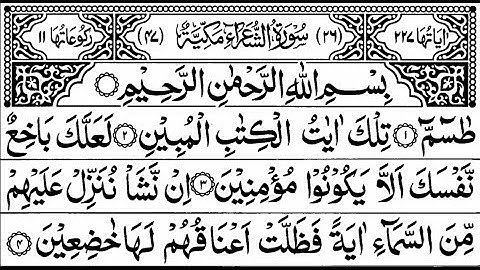 اٰيَاتُهَا ٢٢٧ (٢٦) سُوْرَةُ الشُّعَرَآءِ مَكِّيَّةٌ (٤٧) رُكُوْعَاتُهَا ١١
بِسْمِ اللّٰهِ الرَّحْمٰنِ الرَّحِيْمِ
طٰسٓمّٓ ١ تِلْكَ اٰيٰتُ الْكِتٰبِ الْمُبِيْنِ ٢ لَعَلَّكَ بَاخِعٌ
نَّفْسَكَ اَلَّا يَكُوْنُوْا مُؤْمِنِيْنَ ٣ اِنْ نَّشَاْ نُنَزِّلْ عَلَيْهِمْ
مِّنَ السَّمَآءِ اٰيَةً فَظَلَّتْ اَعْنَاقُهُمْ لَهَا خٰضِعِيْنَ ٤